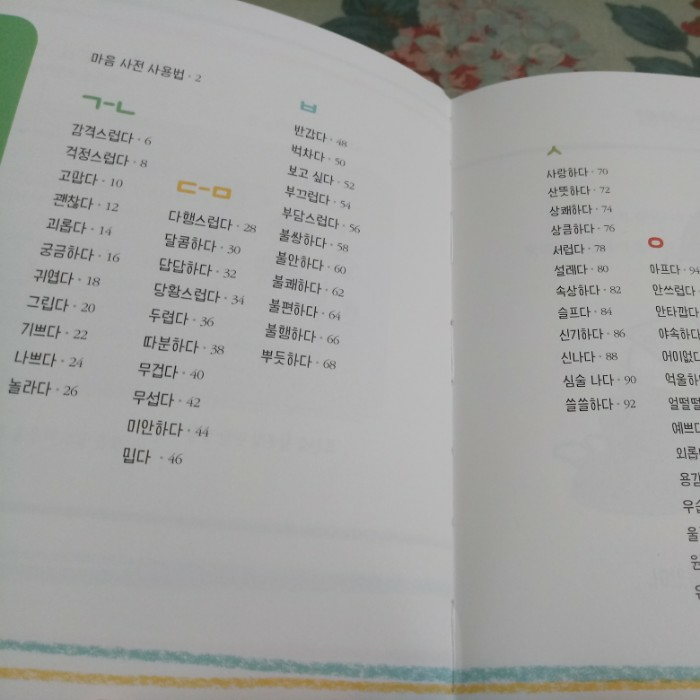 마음 사전 사용법 · 2
ㄱ-ㄴ
감격스럽다 · 6
걱정스럽다 · 8
고맙다 · 10
괜찮다 · 12
괴롭다 · 14
궁금하다 · 16
귀엽다 · 18
그립다 · 20
기쁘다 · 22
나쁘다 · 24
놀라다 · 26
ㄷ-ㅁ
다행스럽다 · 28
달콤하다 · 30
답답하다 · 32
당황스럽다 · 34
두렵다 · 36
따분하다 · 38
무겁다 · 40
무섭다 · 42
미안하다 · 44
밉다 · 46
ㅂ
반갑다 · 48
벅차다 · 50
보고 싶다 · 52
부끄럽다 · 54
부담스럽다 · 56
불쌍하다 · 58
불안하다 · 60
불쾌하다 · 62
불편하다 · 64
불행하다 · 66
뿌듯하다 · 68
ㅅ
사랑하다 · 70
산뜻하다 · 72
상쾌하다 · 74
상큼하다 · 76
서럽다 · 78
설레다 · 80
속상하다 · 82
슬프다 · 84
신기하다 · 86
신나다 · 88
심술 나다 · 90
쓸쓸하다 · 92
ㅇ
아프다 · 94
안쓰럽다 ·
안타깝다
야속하다
어이없다
억울하
얼떨떨
예쁘다
외롭
용감
우습
울